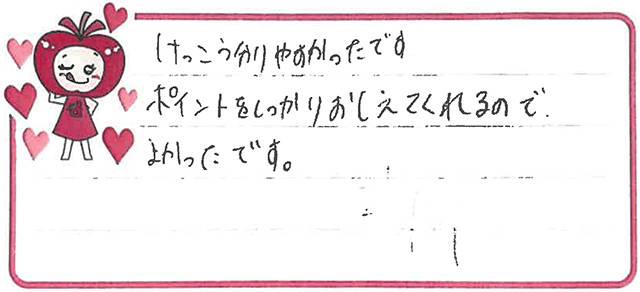 けっこう分りやすかったです
ポイントをしっかりおしえてくれるので、
よかったです。